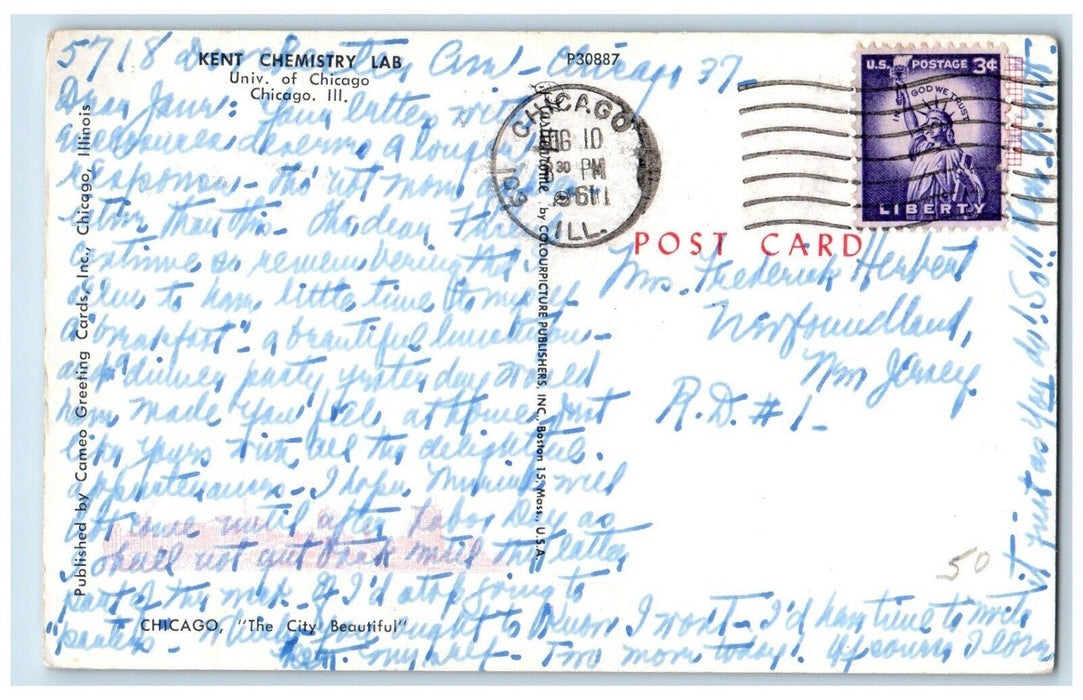 KENT CHEMISTRY LAB
Univ. of Chicago
Chicago. Ill.
P30887
5718 Chicago 37
Dear Your letter with
deserves a longer
response - tho' not more
than this.
Continue so remembering that I
to have little time to myself
a "breakfast" - a beautiful luncheon -
and a dinner party yesterday would
have made you feel at home just
like yours with all the delightful
appurtenances - I hope will
not come until after Labor Day as I
shall not get back until the latter
part of the week - If I'd stop going to
"parties" - ought to know I won't - I'd have time to write
myself - Two more today! Of course I love
it just as you do!
Published by Cameo Greeting Cards, Inc., Chicago, Illinois
by COLOURPICTURE PUBLISHERS, INC., Boston 15, Mass., U.S.A.
CHICAGO, "The City Beautiful"
CHICAGO
10
30 PM
1961
ILL.
U.S. POSTAGE 3¢
IN GOD WE TRUST
LIBERTY
POST CARD
Mrs. Frederick Herbert
Newfoundland,
New Jersey
R.D. #1
50